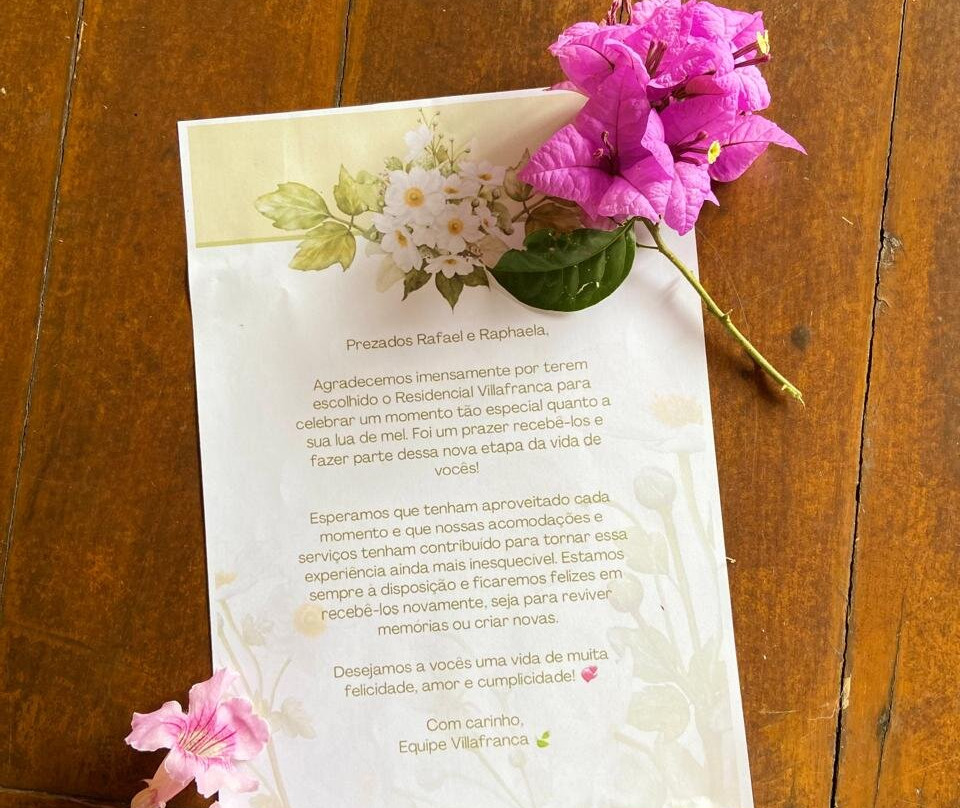 Prezados Rafael e Raphaela,
Agradecemos imensamente por terem
escolhido o Residencial Villafranca para
celebrar um momento tão especial quanto a
sua lua de mel. Foi um prazer recebê-los e
fazer parte dessa nova etapa da vida de
vocês!
Esperamos que tenham aproveitado cada
momento e que nossas acomodações e
serviços tenham contribuído para tornar essa
experiência ainda mais inesquecível. Estamos
sempre à disposição e ficaremos felizes em
recebê-los novamente, seja para reviver
memórias ou criar novas.
Desejamos a vocês uma vida de muita
felicidade, amor e cumplicidade! 💞
Com carinho,
Equipe Villafranca 🌿